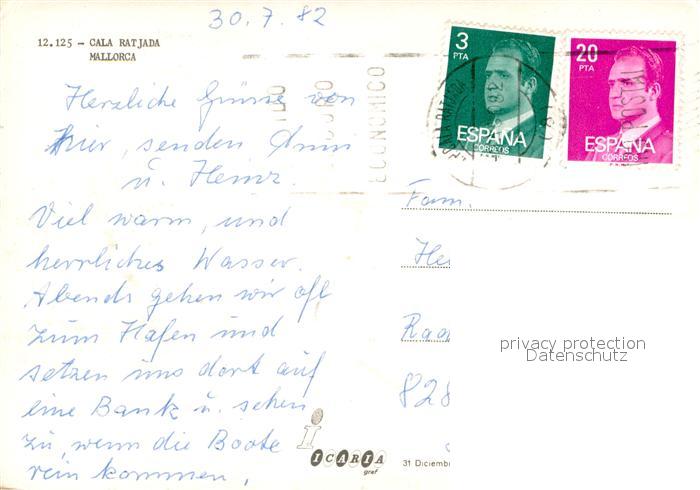 30.7.82
12.125 – CALA RATJADA
MALLORCA
Herzliche Grüsse von
hier, senden Ann
u. Heinz.
Viel warm, und
herrliches Wasser.
Abends gehen wir oft
zum Hafen und
setzen uns dort auf
eine Bank u. sehen
zu, wenn die Boote
rein kommen,
3
PTA
ESPAÑA
CORREOS
20
PTA
ESPAÑA
CORREOS
Fam.
He
Raa
828
privacy protection
Datenschutz
i
ICARIA
graf
31 Diciemb